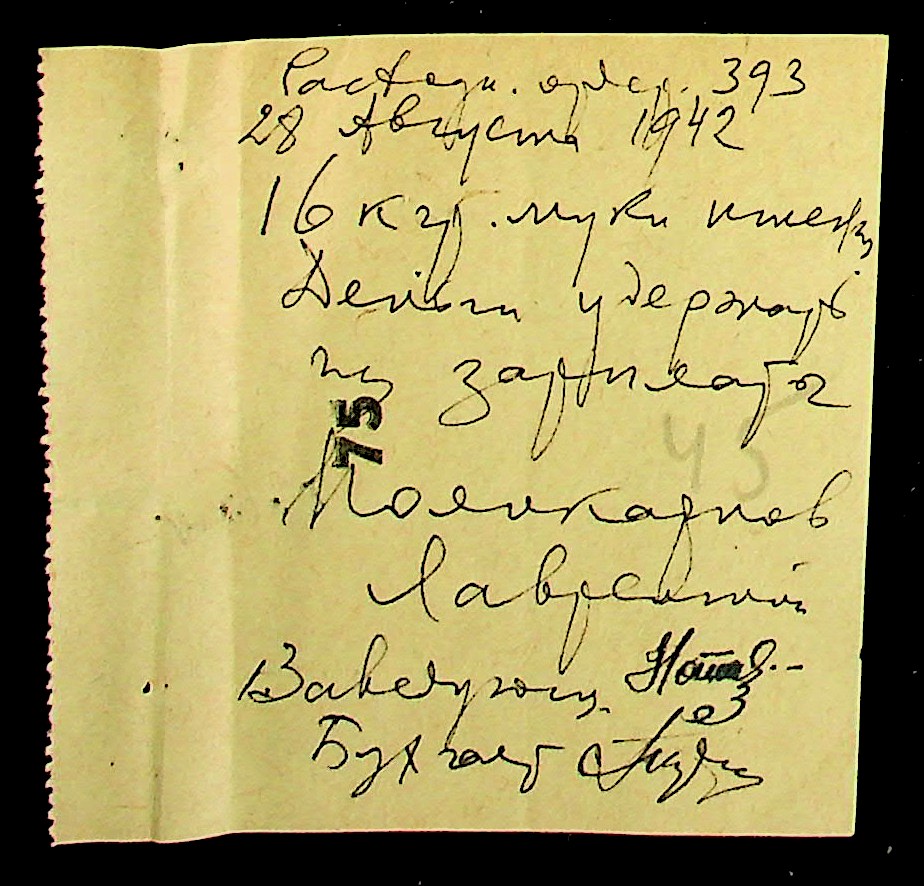 Расходн. ордер. 393
28 Августа 1942
16 кгр. муки пшен.
Деньги удержать
из зарплаты
75
45
Поликарпов
Лаврентий
Заведующ.
Бухгалт